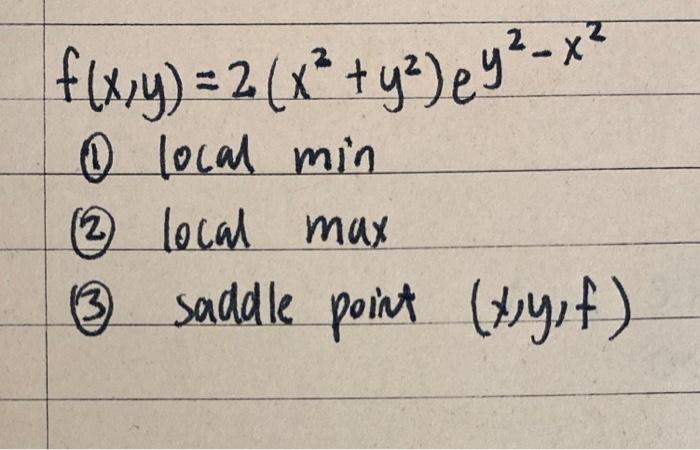 f(x,y) = 2(x² + y²)e^{y² - x²}
① local min
② local max
③ saddle point (x,y,f)